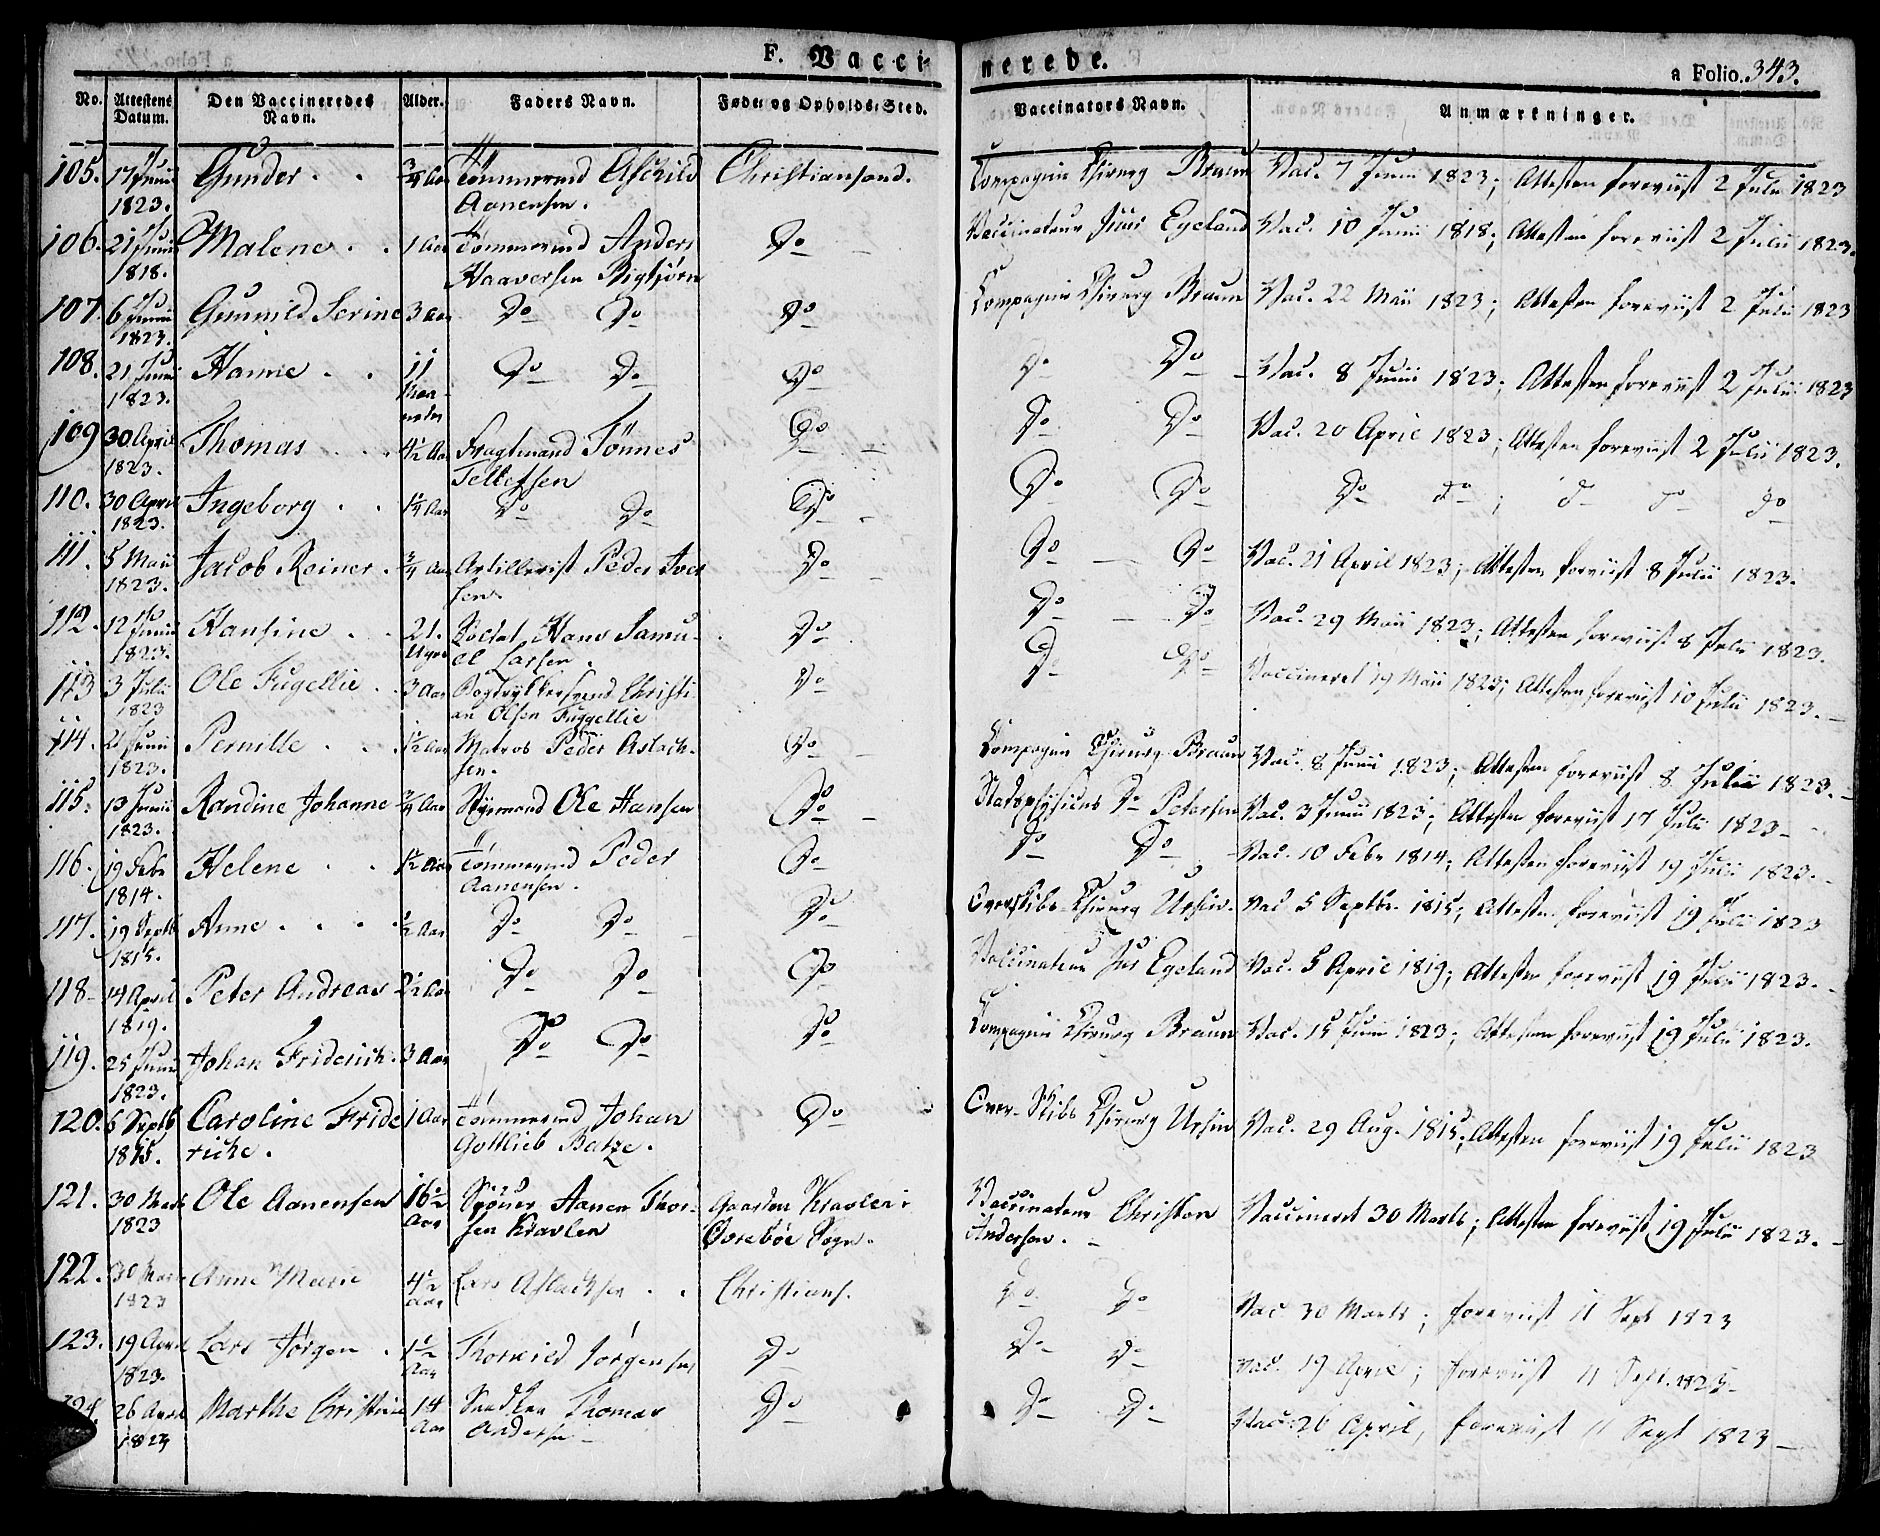 F. Vaccinerede.
a Folio. 343.
No. Attestens Datum. Den Vaccineredes Navn. Alder. Faders Navn. Føde- og Opholds-Sted. Vaccinators Navn. Anmærkninger.
105. 17 Junii 1823. Gunder . . 3/4 Aar Tömmermd Aschild Aanensen. Christiansand. Compagnie Chirurg Braun Vac. 7 Junii 1823; Attesten foreviist 2 Julii 1823
106. 21 Junii 1818. Malene . . 1 Aar Tömmermd Anders Haaversen Bigtjörn Do Vaccinateur Juus Egeland Vac. 10 Junii 1818; Attesten foreviist 2 Julii 1823.
107. 6 Junii 1823. Gunnild Serine 3 Aar Do Do Do Compagnie Chirurg Braun Vac. 22 Maii 1823; Attesten foreviist 2 Julii 1823
108. 21 Junii 1823. Hanne . . 11 Maaneder Do Do Do Do Do Vac. 8 Junii 1823; Attesten foreviist 2 Julii 1823
109 30 April 1823. Thomas . . 4 1/2 Aar Fragtmand Tönnes Tellefsen Do Do Do Vac. 20 April 1823; Attesten foreviist 2 Julii 1823.
110. 30 April 1823. Ingeborg . . 1 1/4 Aar Do Do Do Do Do Do do ; d do
111. 5 Maii 1823. Jacob Reiner . 3/4 Aar Artillerist Peder Iversen. Do Do Do Vac. 21 April 1823; Attesten foreviist 8 Julii 1823.
112. 12 Junii 1823. Hansine . . 21. Uger Soldat Hans Samuel Larsen. Do Do Do Vac. 29 Maii 1823; Attesten foreviist 8 Julii 1823.
113 3 Julii 1823 Ole Fugellie . . 3 Aar Bogtrykkersvend Christian Olsen Fuggellie Do Do Do Vaccineret 19 Maii 1823; Attesten foreviist 10 Julii 1823.
114. 21 Junii 1823. Pernille . . 1 1/2 Aar Matros Peder Aslachsen. Do Compagnie Chirurg Braun Vac. 8 Junii 1823; Attesten foreviist 8 Julii 1823.
115. 13 Junii 1823. Randine Johanne 3/4 Aar Styrmand Ole Hansen Do Stadsphysicus Dr Petersen Vac. 3 Junii 1823; Attesten foreviist 17 Julii 1823
116. 19 Febr 1814. Helene . . 1 1/2 Aar Tömmermd Peder Aanensen. Do Do Do Vac. 10 Febr 1814; Attesten foreviist 19 Julii 1823.
117. 19 Septb 1815. Anne . . . 1/2 Aar Do Do Do Overskibs-Chirurg Ursin. Vac 5 Septbr. 1815; Attesten foreviist 19 Julii 1823
118 14 April 1819. Peter Andreas 2 1/2 Aar Do Do Do Vaccinateur Jus Egeland Vac. 5 April 1819; Attesten foreviist 19 Julii 1823.
119. 25 Junii 1823. Johan Friderich. 3 Aar Do Do Do Compagnie Chirurg Braun Vac. 15 Junii 1823; Attesten foreviist 19 Julii 1823.
120. 6 Septb 1815. Caroline Friderike. 1 Aar Tömmermd Johan Gottlieb Batze. Do Over-Skibs Chirurg Ursin Vac. 29 Aug. 1815; Attesten foreviist 19 Julii 1823
121. 30 Marts 1823 Ole Aanensen 16 1/2 Aar Aanen Thorsen Kravlen Gaarden Kravlen i Övreböe Sogn. Vaccinateur Christen Andersen. Vaccineret 30 Marts; Attesten foreviist 19 Julii 1823.
122. 30 Marts 1823 Anne Marie 4 1/2 Aar Lars Aslachsen . . Christians. Do Do Vac 30 Marts; foreviist 11 Sept 1823
123. 19 April 1823. Lars Jörgen . 1 1/2 Aar Thorkild Jörgensen Do Do Do Vac. 19 April; foreviist 11 Sept. 1823.
124. 26 April 1823 Marthe Christine 14 Aar Thomas Andersen Do Do Do Vac. 26 April, foreviist 11 Sept 1823